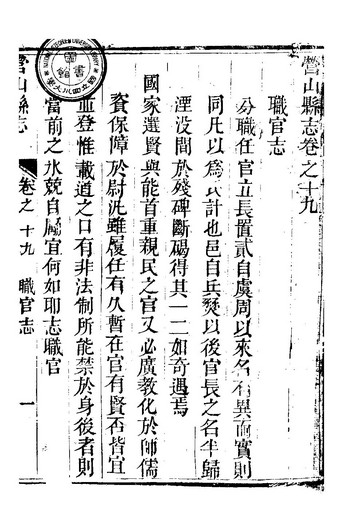 營山縣志卷之十九
職官志
分職任官立長置貳自虞周以來名不異而實則
同凡以為民計也邑自兵燹以後官長之名半歸
湮没間於殘碑斷碣得其一二如奇遇焉
國家選賢與能首重親民之官又必廣教化於師儒
資保障於尉汛雖履任有久暫在官有賢否皆宜
並登惟載道之口有非法制所能禁於身後者則
當前之水兢自屬宜何如耶志職官
營山縣志
卷之十九
職官志
一